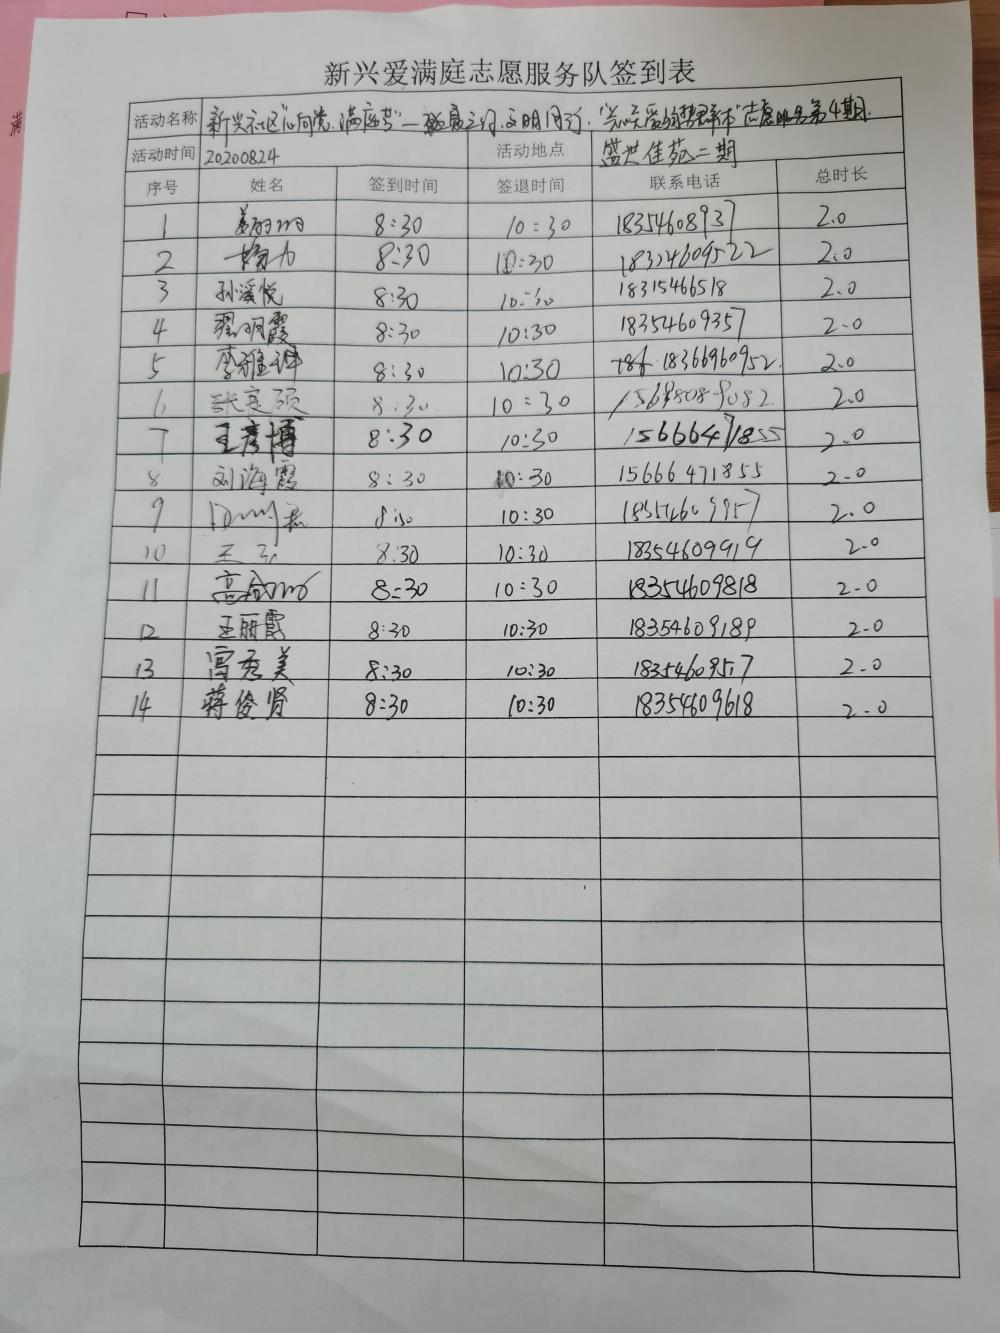 新兴爱满庭志愿服务队签到表
活动名称 新兴社区"心向党、满庭芳"—盛夏之约、文明同行,"关爱弱势群体"志愿服务第4期
活动时间 20200824 活动地点 盛世佳苑二期
序号 姓名 签到时间 签退时间 联系电话 总时长
1 8:30 10:30 18354608937 2.0
2 杨力 8:30 10:30 18324609522 2.0
3 孙溪悦 8:30 10:30 18315466518 2.0
4 翟明霞 8:30 10:30 18354609357 2.0
5 李雅琪 8:30 10:30 18366960952 2.0
6 张亮硕 8:30 10:30 2.0
7 王彦博 8:30 10:30 15666471855 2.0
8 刘海霞 8:30 10:30 15666471855 2.0
9 8:30 10:30 18354609957 2.0
10 8:30 10:30 18354609919 2.0
11 8:30 10:30 18354609818 2.0
12 王丽霞 8:30 10:30 18354609189 2.0
13 宫秀美 8:30 10:30 2.0
14 蒋俊贤 8:30 10:30 18354609618 2.0
满